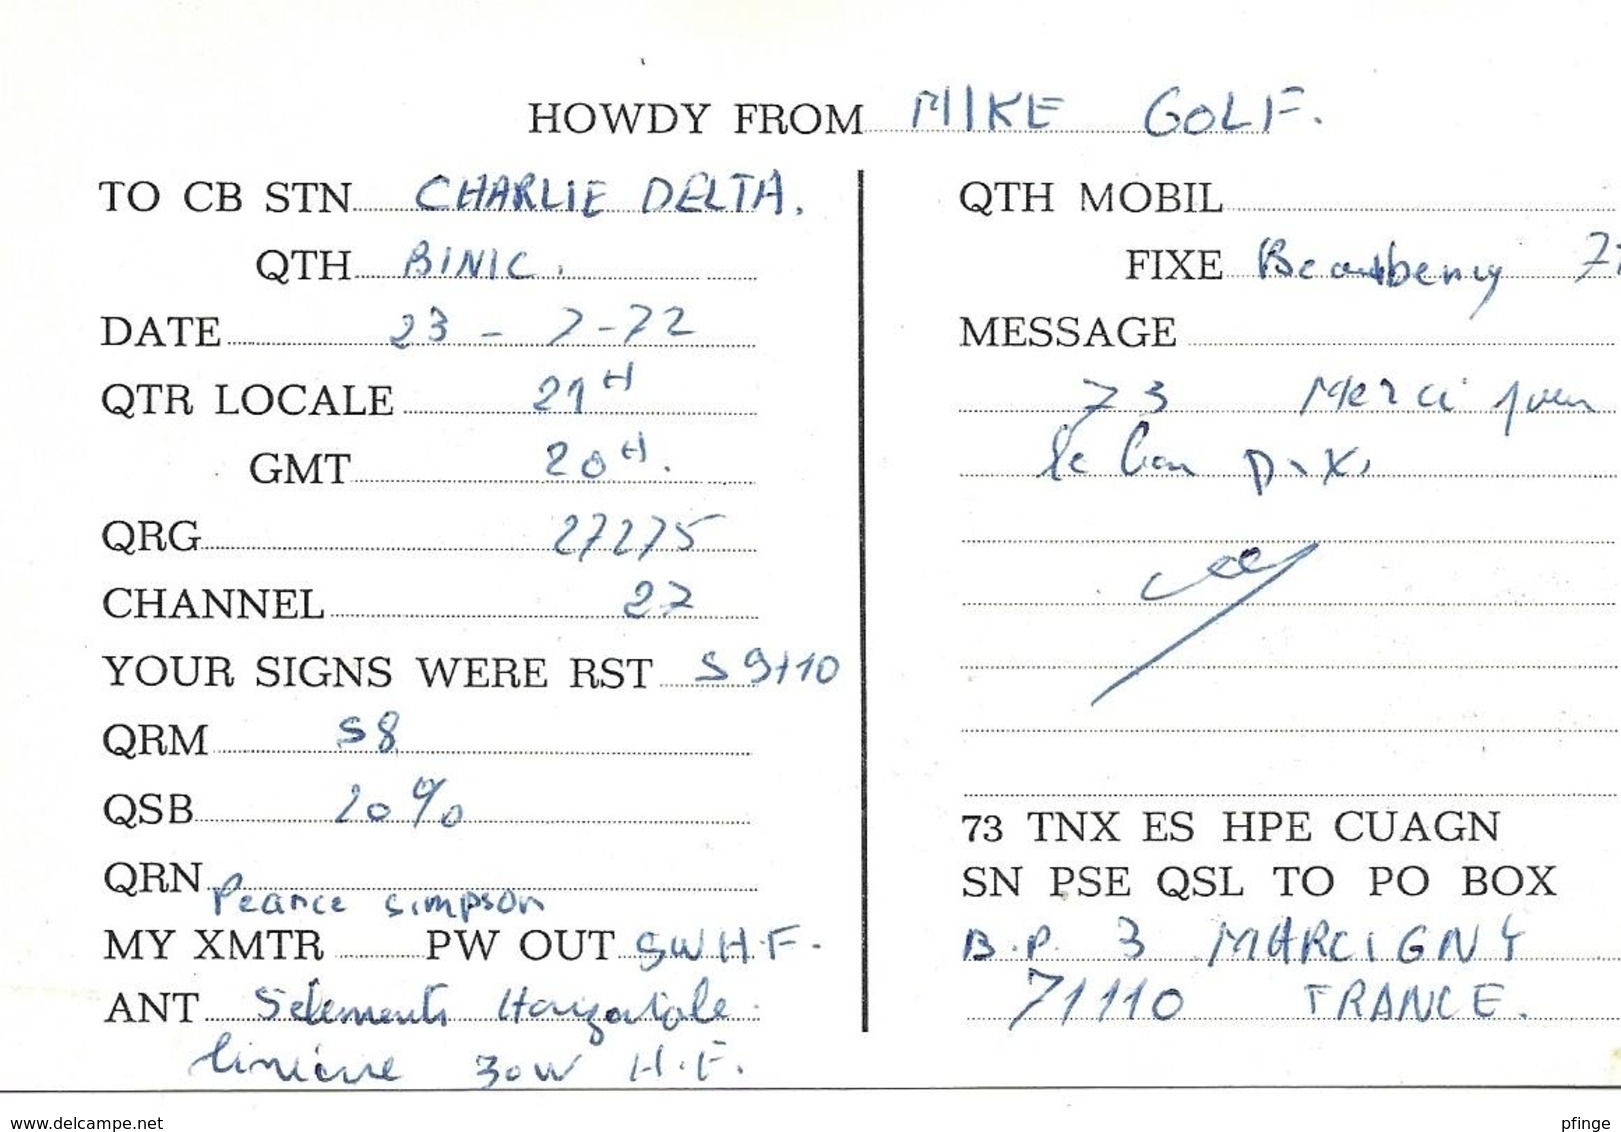 HOWDY FROM MIKE GOLF.
TO CB STN CHARLIE DELTA.
QTH BINIC.
DATE 23-7-72
QTR LOCALE 21H
GMT 20H.
QRG 27275
CHANNEL 27
YOUR SIGNS WERE RST S9+10
QRM S8
QSB 20%
QRN
Pearce simpson
MY XMTR PW OUT 5W H.F.
ANT 5 elements Horizontale
linéaire 30W H.F.
QTH MOBIL
FIXE
MESSAGE
73 Merci pour
le bon D.X,
73 TNX ES HPE CUAGN
SN PSE QSL TO PO BOX
B.P. 3 MARCIGNY
71110 FRANCE.
www.delcampe.net
pfinge